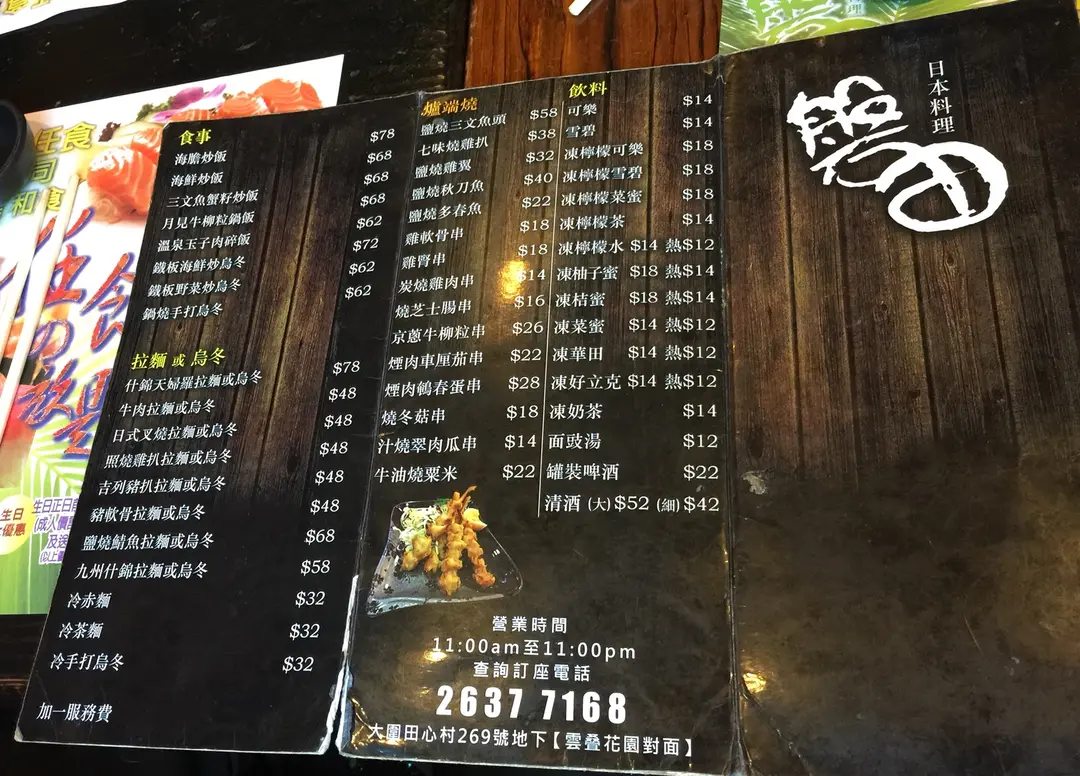 食事
海膽炒飯 $78
海鮮炒飯 $68
三文魚蟹籽炒飯 $68
月見牛柳粒鍋飯 $68
溫泉玉子肉碎飯 $62
鐵板海鮮炒烏冬 $72
鐵板野菜炒烏冬 $62
鍋燒手打烏冬 $62
拉麵 或 烏冬
什錦天婦羅拉麵或烏冬 $78
牛肉拉麵或烏冬 $48
日式叉燒拉麵或烏冬 $48
照燒雞扒拉麵或烏冬 $48
吉列豬扒拉麵或烏冬 $48
豬軟骨拉麵或烏冬 $48
鹽燒鯖魚拉麵或烏冬 $68
九州什錦拉麵或烏冬 $58
冷赤麵 $32
冷茶麵 $32
冷手打烏冬 $32
加一服務費
爐端燒
鹽燒三文魚頭 $58
七味燒雞扒 $38
鹽燒雞翼 $32
鹽燒秋刀魚 $40
鹽燒多春魚 $22
雞軟骨串 $18
雞腎串 $18
炭燒雞肉串 $14
燒芝士腸串 $16
京蔥牛柳粒串 $26
煙肉車厘茄串 $22
煙肉鵪春蛋串 $28
燒冬菇串 $18
汁燒翠肉瓜串 $14
牛油燒粟米 $22
飲料
可樂 $14
雪碧 $14
凍檸檬可樂 $18
凍檸檬雪碧 $18
凍檸檬菜蜜 $18
凍檸檬茶 $18
凍檸檬水 $14 熱$12
凍柚子蜜 $18 熱$14
凍桔蜜 $18 熱$14
凍菜蜜 $14 熱$12
凍華田 $14 熱$12
凍好立克 $14 熱$12
凍奶茶 $14
面豉湯 $12
罐裝啤酒 $22
清酒 (大) $52 (細) $42
營業時間
11:00am至11:00pm
查詢訂座電話
2637 7168
大圍田心村269號地下【雲叠花園對面】
日本料理
任食
和食
生日正日
生日
優惠